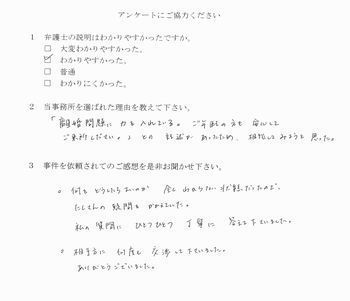 アンケートにご協力ください
1 弁護士の説明はわかりやすかったですか。
□ 大変わかりやすかった。
☑ わかりやすかった。
□ 普通
□ わかりにくかった。
2 当事務所を選ばれた理由を教えて下さい。
「離婚問題に力を入れている。ご年配の方も安心して
ご来所ください。」との記述があったため、相談してみようと思った。
3 事件を依頼されてのご感想を是非お聞かせ下さい。
○ 何をどうしたらいいのか 全くわからない状態だったので、
たくさんの疑問をかかえていた。
私の質問に ひとつひとつ 丁寧に 答えて下さいました。
○ 相手方に 何度も 交渉して下さいました。
ありがとうございました。